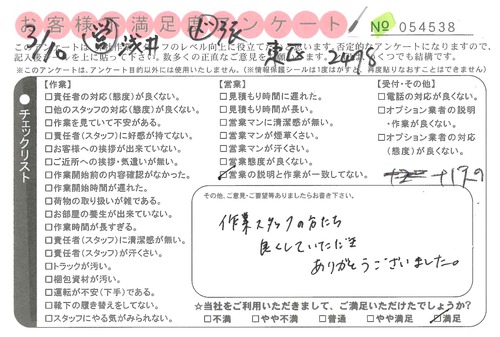 お客様ご満足度アンケート
№ 054538
3/10 浅井
東区 2498
このアンケートは、
向上に役立て
います。否定的なアンケートになりますので、
記入後
を上に貼って下さい。数多くの正直なご意見を
くつでも結構です。
※このアンケートは、アンケート目的以外には使用いたしません。(※情報保護シールは1度はがすと、再度貼りなおすことはできません)
チェックリスト
【作業】
□責任者の対応(態度)が良くない。
□他のスタッフの対応(態度)が良くない。
□作業を見ていて不安がある。
□責任者(スタッフ)に好感が持てない。
□お客様への挨拶が出来ていない。
□ご近所への挨拶・気遣いが無い。
□作業開始前の内容確認がなかった。
□作業開始時間が遅れた。
□荷物の取り扱いが雑である。
□お部屋の養生が出来ていない。
□作業時間が長すぎる。
□責任者(スタッフ)に清潔感が無い。
□責任者(スタッフ)が汗くさい。
□トラックが汚い。
□梱包資材が汚い。
□運転が不安(下手)である。
□靴下の履き替えをしてない。
□スタッフにやる気がみられない。
【営業】
□見積もり時間に遅れた。
□見積もり時間が長い。
□営業マンに清潔感が無い。
□営業マンが煙草くさい。
□営業マンが汗くさい。
□営業態度が良くない。
□営業の説明と作業が一致してない。
【受付・その他】
□電話の対応が良くない。
□オプション業者の説明
・作業が良くない。
□オプション業者の対応
(態度)が良くない。
その他、ご意見・ご要望等ありましたらお書き下さい。
作業スタッフの方たち
良くしていただき
ありがとうございました。
☆当社をご利用いただきまして、ご満足いただけたでしょうか?
□不満 □やや不満 □普通 □やや満足 □満足